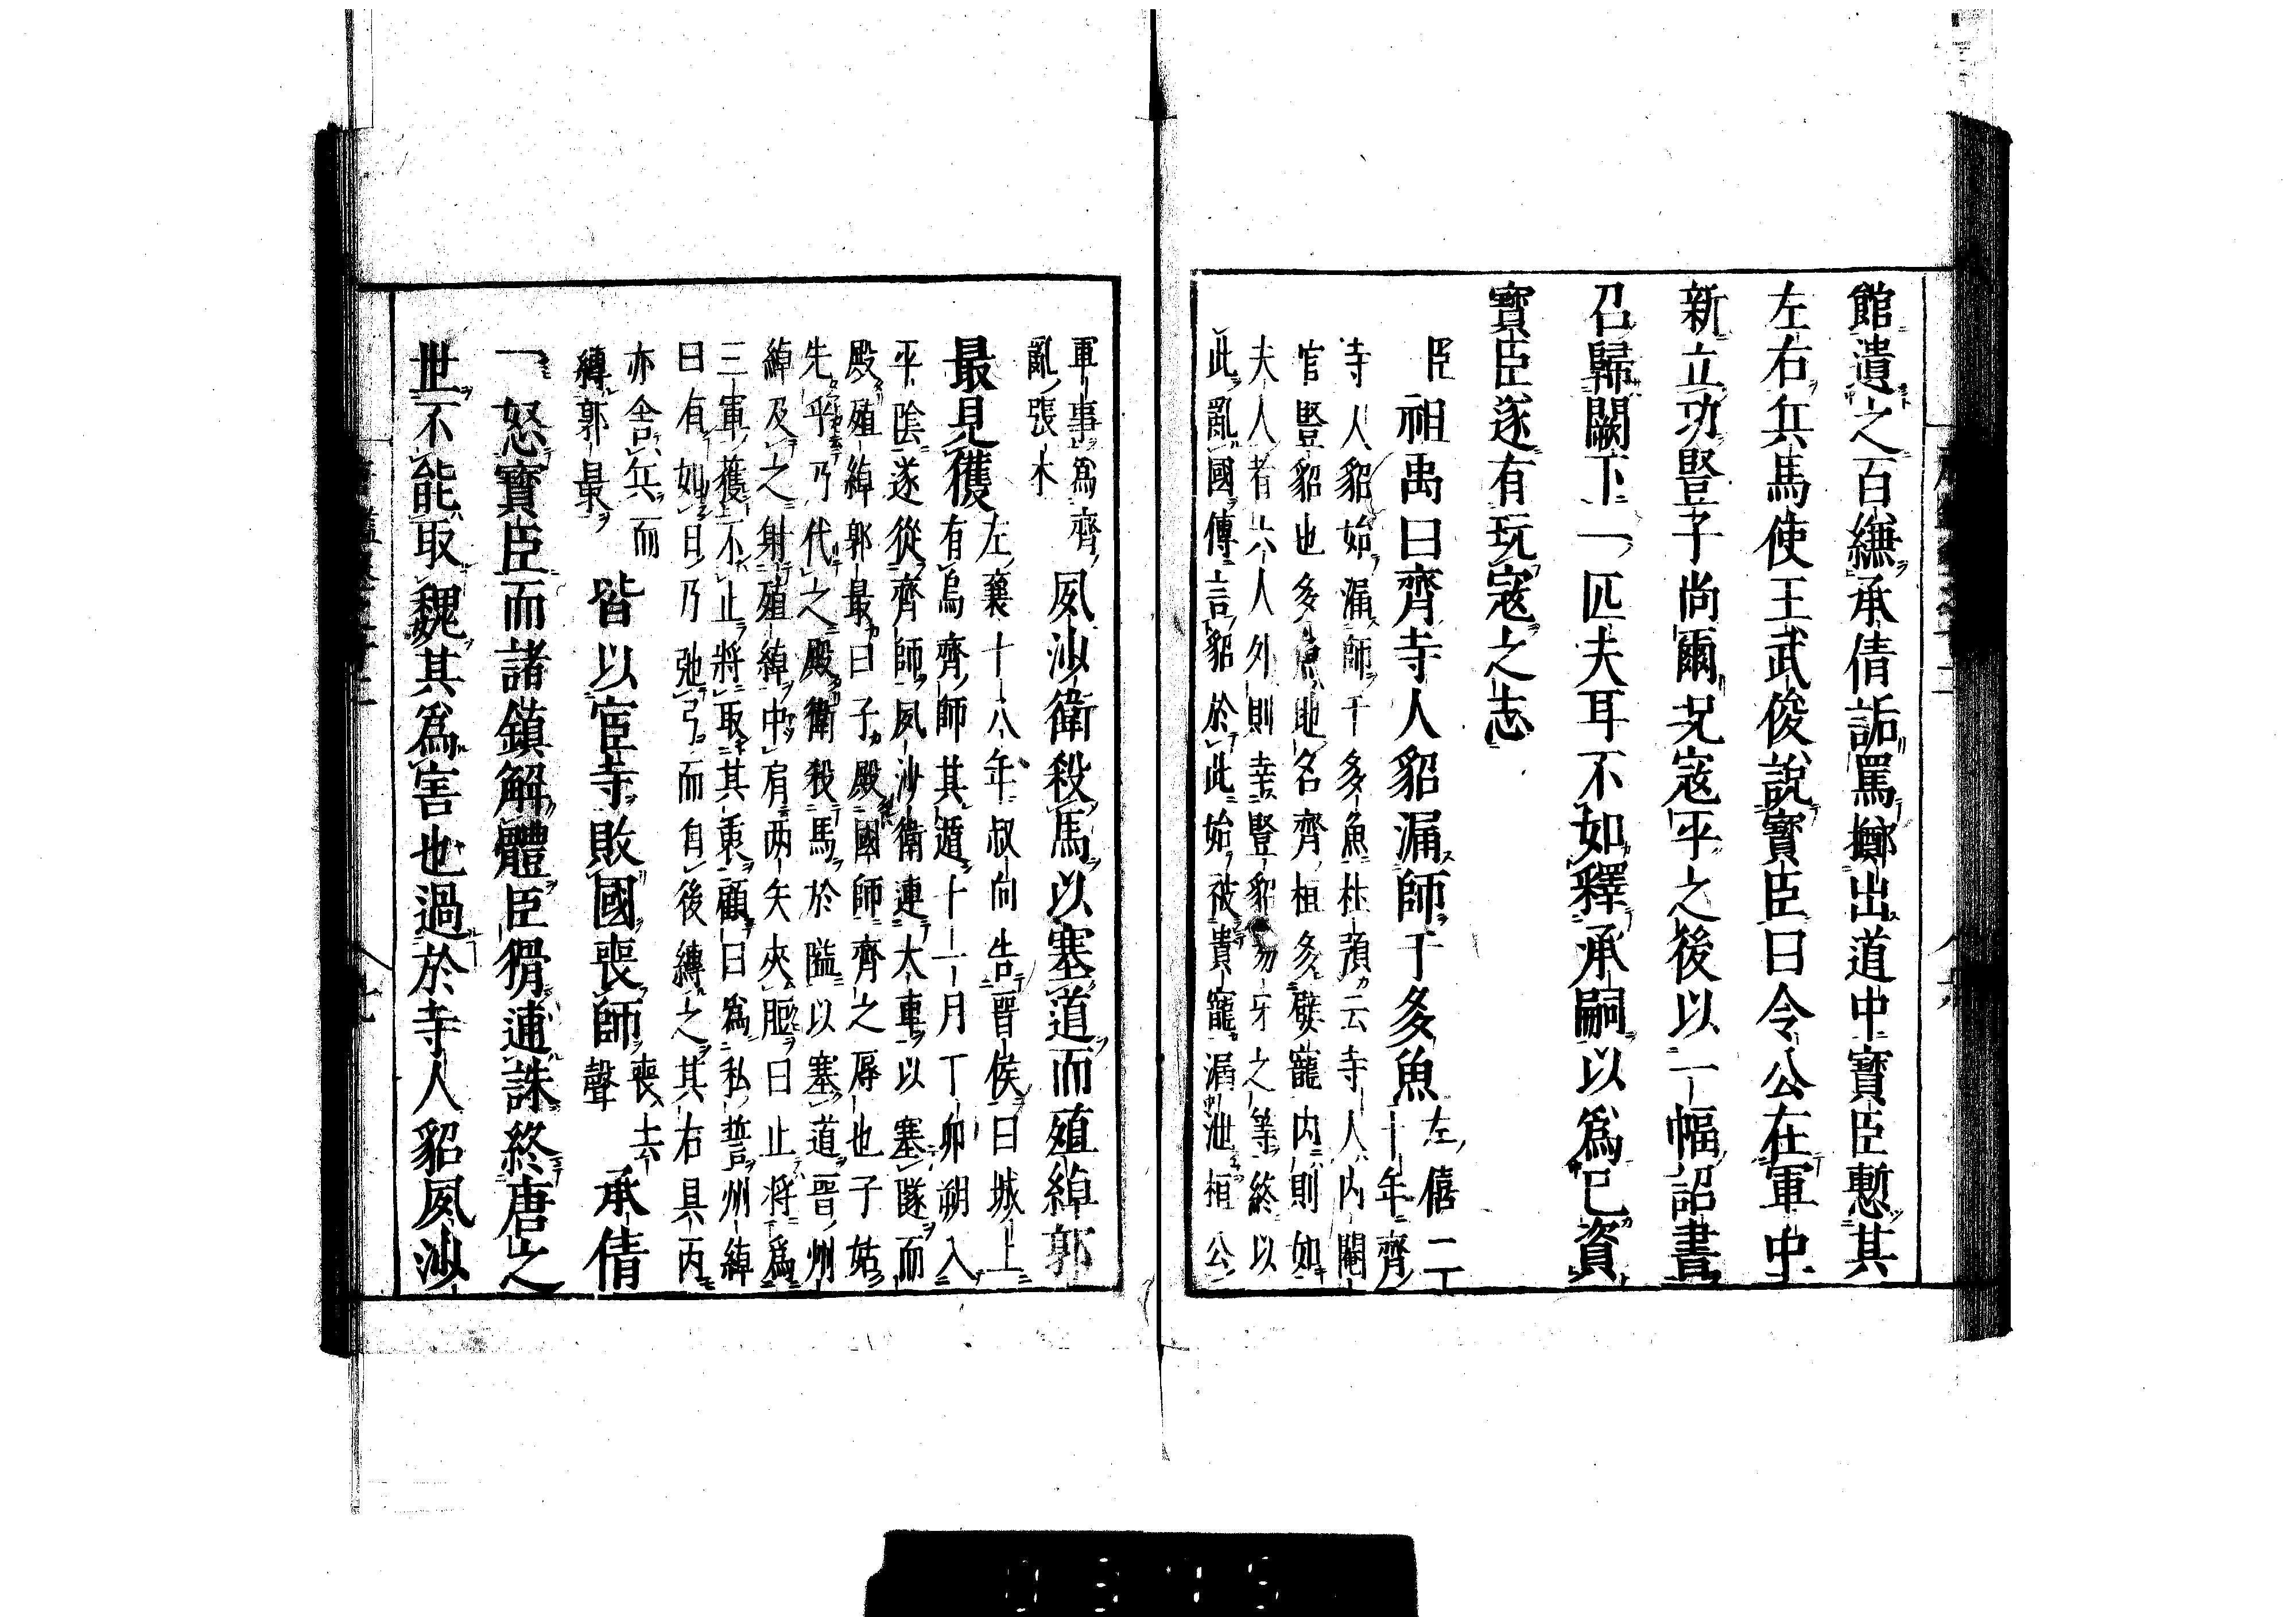 館遺之百縑承倩詬罵擲出道中寶臣慙其
左右兵馬使王武俊説寶臣曰今公在軍中
新立功豎子尚爾况寇平之後以一幅詔書
召歸闕下一匹夫耳不如釋承嗣以爲己資
寶臣遂有玩寇之志
臣祖禹曰齊寺人貂漏師于多魚
左僖二
十年齊
寺人貂始漏師于多魚杜預云寺人内閹
官豎貂也多魚地名齊桓多嬖寵内則如
夫人者六人外則幸豎貂易牙之等終以
此亂國傳言貂於此始被貴寵漏泄桓公
軍事爲齊
亂張本
夙沙衛殺馬以塞道而殖綽郭
最見獲
左襄十八年叔向告晋侯曰城上
有烏齊師其遁十一月丁卯朔入
平陰遂從齊師夙沙衛連大車以塞隧而
殿殖綽郭最曰子殿國師齊之辱也子姑
先乎乃代之殿衛殺馬於隘以塞道晋州
綽及之射殖綽中肩两矢夾脰曰止將爲
三軍獲不止將取其衷顧曰爲私誓州綽
曰有如日乃弛弓而自後縛之其右具丙
亦舎兵而
縛郭最
皆以宦寺敗國喪師
喪去
聲
承倩
一怒寶臣而諸鎮解體臣猾逋誅終唐之
世不能取魏其爲害也過於寺人貂夙沙